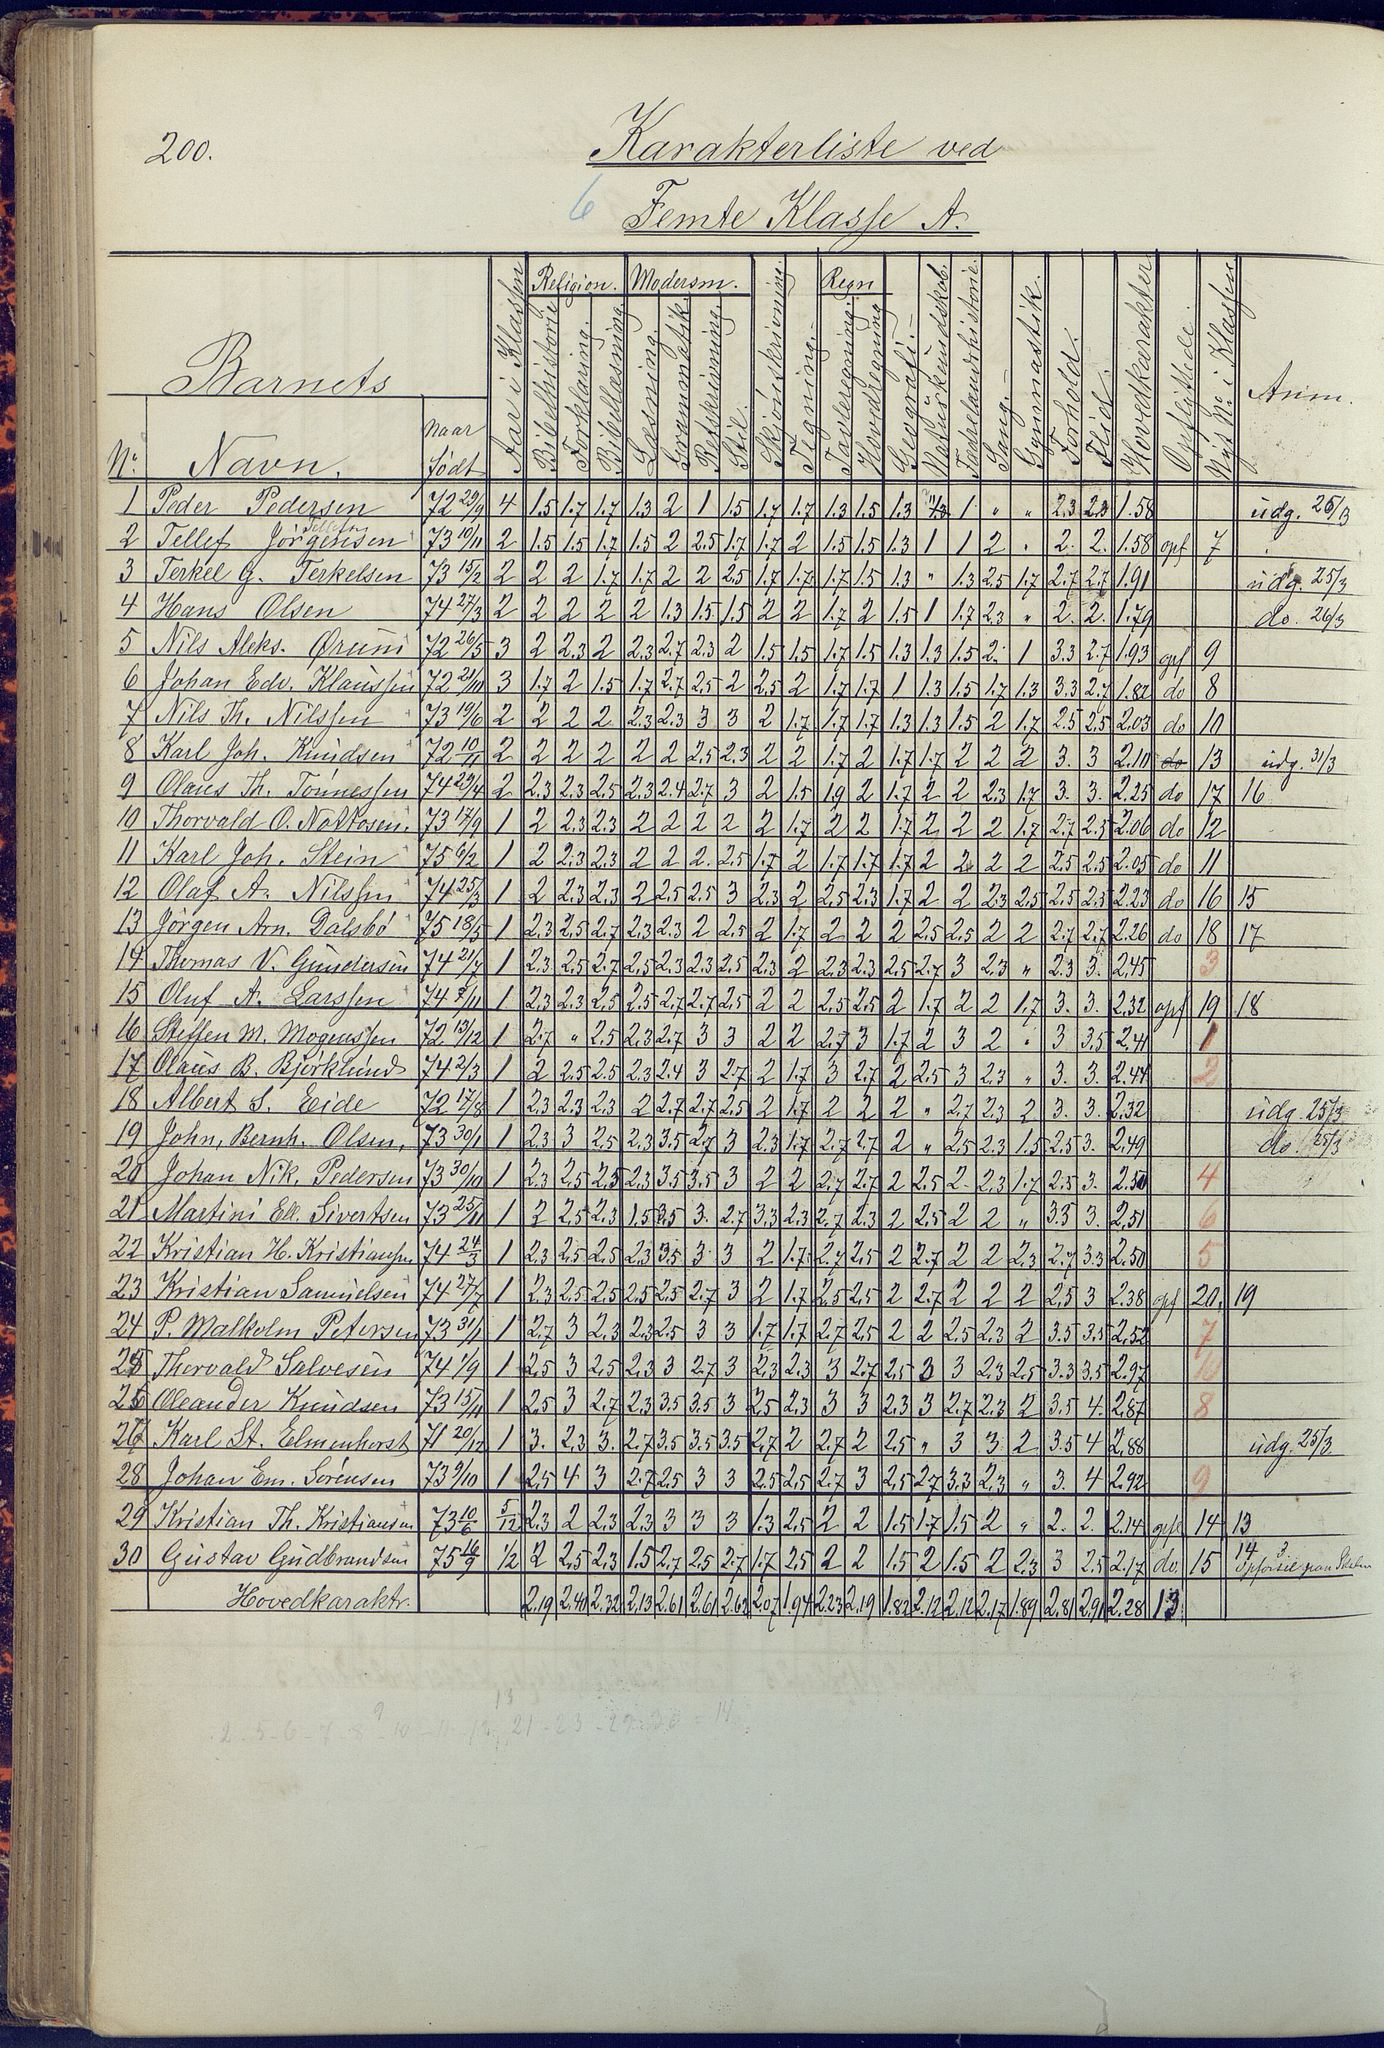 200.
Karakterliste ved
6 Femte Klasse A.
Barnets
No. Navn. Naar født Aar i Klassen Religion. Bibelhistorie Forklaring. Bibellæsning. Modersm. Læsning. Grammatik. Retskrivning Stil. Skjönskrivning. Tegning. Regn Tavleregning. Hovedregning Geografi. Naturkundskab. Fædrelandshistorie. Sang. Gymnastik. Forhold. Flid. Hovedkarakter Opflyttede. Nyt No. i Klassen Anm.
1 Peder Pedersen 72 29/9 4 1.5 1.7 1.7 1.3 2 1 1.5 1.7 1.7 1.3 1.5 1.3 1.3 1 " " 2.3 2.3 1.58 udg. 26/3
2 Tellef Jörgensen 73 19/11 2 1.5 1.5 1.7 1.5 2 2.5 1.7 1.7 2 1.5 1.5 1.3 1 1 2 " 2. 2. 1.58 opf 7
3 Terkel G. Terkelsen 73 15/2 2 2 2 1.7 1.7 2 2 2.5 1.7 1.7 1.7 1.5 1.3 " 1.3 2.5 1.7 2.7 2.7 1.91 udg. 25/3
4 Hans Olsen 74 27/3 2 2 2 2 2 1.3 1.5 1.5 2 2 1.7 2 1.5 1 1.7 2.3 " 2. 2. 1.79 do. 26/3
5 Nils Aleks. Øruni 72 26/5 3 2 2.3 2 2.3 2.7 2.3 2 1.5 1.5 1.7 1.5 1.3 1.3 1.5 2. 1 3.3 2.7 1.93 opf 9
6 Johan Edv. Klaussen 72 21/10 3 1.7 2 1.5 1.7 2.7 2.5 2 2.5 2 1.7 1.7 1 1.3 1.5 1.7 1.3 3.3 2.7 1.82 do 8
7 Nils Th. Nilssen 73 19/6 2 2 2 2 2.3 2.3 3 3 2 1.7 1.7 1.7 1.3 1.3 1.5 2 1.7 2.5 2.5 2.03 do 10
8 Karl Joh. Knudsen 72 10/11 2 2 2 2 2 2 2.5 2.3 2 2 1.7 2 1.7 1.7 2 2 2 3. 3 2.10 do 13 udg. 31/3
9 Olaus Th. Tönnessen 74 29/4 2 2.3 2.3 2.5 2.3 2.4 2.7 3 2 1.5 1.9 2 1.7 2 2 2.3 1.7 3. 3. 2.25 do 17 16
10 Thorvald O. Nottosen. 73 17/9 1 2 2.3 2.3 2 2 2 2 2 1.7 2 2 1.7 2 2 2 1.7 2.7 2.5 2.06 do 12
11 Karl Joh. Stein 75 6/2 1 2 2.3 2.3 2 2 2. 2.5 1.7 2 1.7 1.7 1.7 2 2 2 2 2.5 2.5 2.05 do 11
12 Olaf A. Nilssen 74 25/3 1 2 2.3 2.3 2 2.5 2.5 3 2.3 2 2.5 2.3 1.7 2 2 2.3 2.5 2.5 2.5 2.23 do 16 15
13 Jörgen Arn. Dalsbö 75 18/5 1 2.3 2.5 2.7 2.3 2.3 2 2.5 2 1.7 2 2 2 2.5 2.5 2 2 2.7 2.7 2.26 do 18 17
14 Thomas V. Gundersen 74 21/7 1 2.3 2.5 2.7 2.5 2.3 2.3 2.5 2.3 2 2.3 2.3 2.5 2.7 3 2.3 " 2.3 3. 2.45 3
15 Oluf A. Larssen 74 7/11 1 2.3 2.3 2.5 2.5 2.7 2.7 2.5 2 2 2.5 2.5 2 1.7 2 2 1.7 3. 3. 2.32 opf 19 18
16 Steffen M. Mogenssen 72 13/12 1 2.7 " 2.5 2.3 2.7 3 3 2 2 2.7 3 1.7 2 3 2 " 3 3.5 2.41 1
17 Olaus B. Björklund 74 2/3 1 2 2.5 2.5 2.3 2.4 3 2.7 2 1.7 3 2.7 2 2.5 3 2.3 " 3. 3. 2.44 2
18 Albert S. Eide 72 17/8 1 2.3 2.3 2.3 2 2.7 2.7 2.5 2 1.7 2 2 2 " 2.7 2.3 2 3. 3. 2.32 udg. 25/3
19 John, Bernh. Olsen, 73 30/1 1 2.3 3 2.5 2.3 3.5 2.7 3 2.3 1.7 2.7 2.7 2 " 2.5 2.3 1.5 2.5 3. 2.49 do. 25/3
20 Johan Nik. Pedersen 73 30/10 1 2.3 2.5 2.5 2.3 3.5 3.5 3 2 2 2.7 2.7 2 2.5 2. 2.3 1.7 2.5 3. 2.50 4
21 Martini Ell. Sivertsen 73 25/11 1 2 2.5 2.3 1.5 3.5 3. 2.7 3.3 2.3 2.7 2.3 2 2.5 2 2 " 3.3 3. 2.51 6
22 Kristian H. Kristiansen 74 24/3 1 2.3 2.5 2.5 2.3 3.5 3 3 2 1.7 2.7 2.5 2 2.7 2 2 2.3 2.7 3.3 2.50 5
23 Kristian Samuelsen 74 27/7 1 2.3 2.5 2.5 2.5 2.5 2.7 3 2 1.7 2.5 2.5 2 2.7 2 2 2 2.5 3 2.38 opf 20. 19
24 P. Malkolm Petersen 73 31/1 1 2.7 3 2.3 2.3 2.5 3 3 1.7 1.7 2.7 2.5 2 2 2.5 2.3 2 3.5 3.5 2.52 7
25 Thorvald Salvesen 74 1/9 1 2.5 3 2.5 2.3 3 2.7 3 2.3 2.3 3 2.7 2.5 3 3 2.3 2.5 3.3 3.5 2.97 10
26 Oleander Knudsen 73 15/11 1 2.5 3 2.7 2.3 3.5 3.5 3 2.5 2.3 3 3 2.3 3 2.7 2.3 2 3.5 4. 2.87 8
27 Karl St. Elmenhorst 71 20/12 1 3. 2.3 3. 2.7 3.5 3.5 3.5 2.7 2 2.7 2 2.5 " 3 3 2 3.5 4 2.88 udg. 25/3
28 Johan Em. Sörensen 73 9/10 1 2.5 4 3 2.7 2.5 3 3 2.5 2.5 2.7 3 2.5 2.7 3.3 2.3 " 3. 4 2.92 9
29 Kristian Th. Kristiansen 73 10/6 5/12 2.3 2 2.3 2.3 3 3 3 1.3 2.5 2 2 1.5 1.7 1.5 2 " 2. 2. 2.14 opf 14 13
30 Gustav Gudbrandsen 75 16/9 1/2 2 2.5 2.3 1.5 2.7 2.5 2.7 1.7 2.5 2 2 1.5 2 1.5 2 2.3 3 2.5 2.17 do. 15 14
Hovedkaraktr. 2.19 2.40 2.32 2.13 2.61 2.61 2.62 2.07 1.94 2.23 2.19 1.82 2.12 2.12 2.17 1.89 2.81 2.91 2.28 13
2-5-6-7-8-9-10-11-12-13 21-23-29-30 = 14